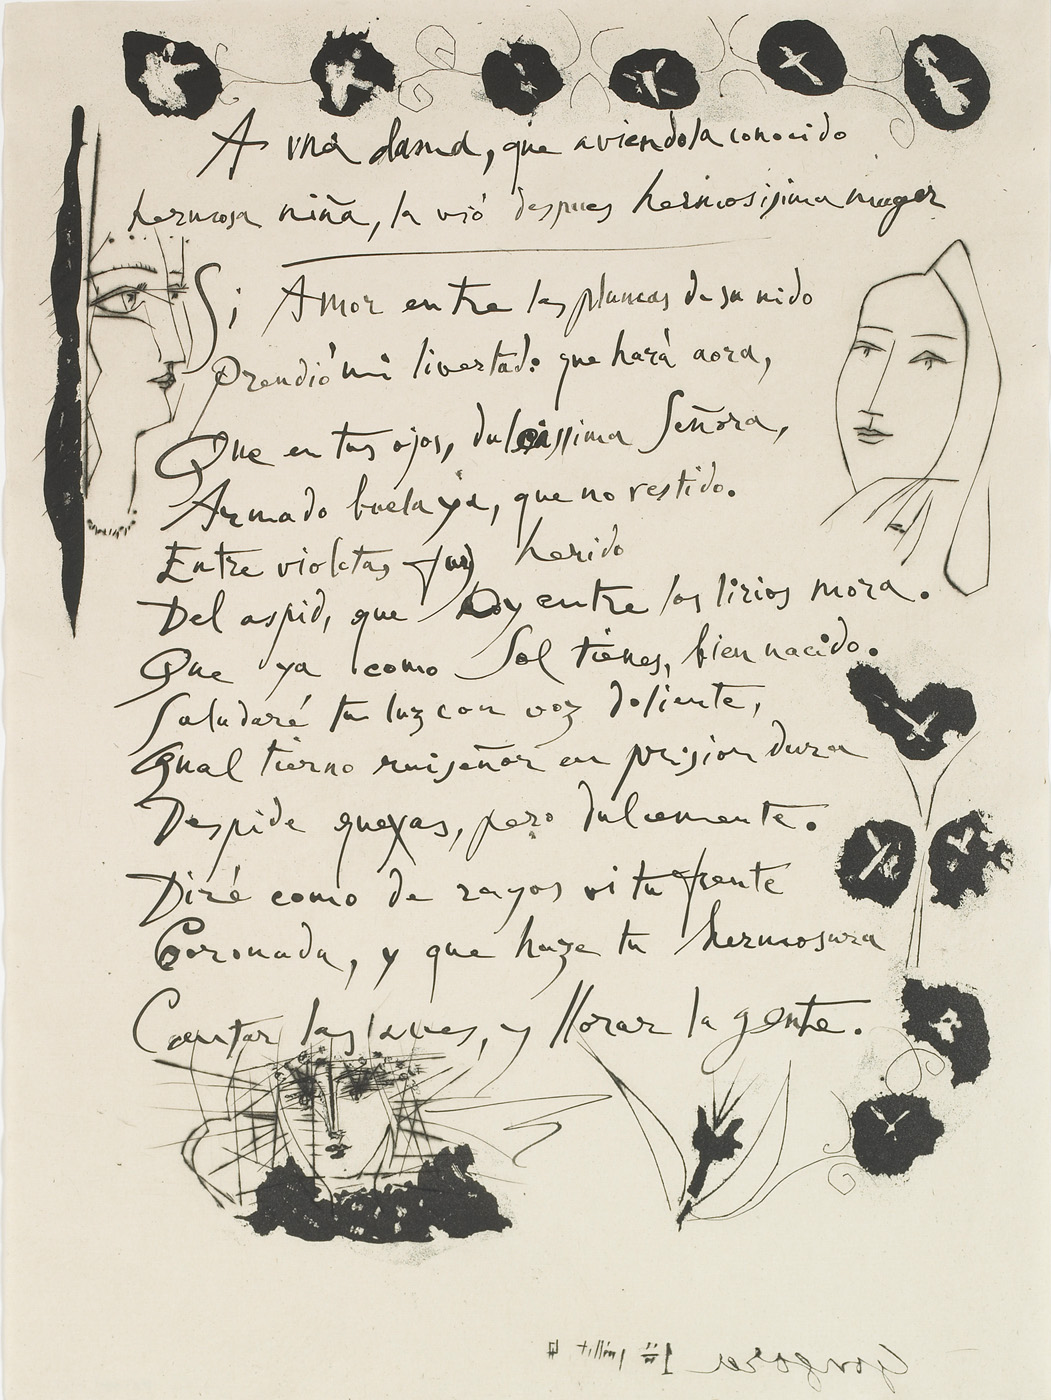 A una dama, que aviendola conocido
hermosa niña, la vió despues hermosisima muger
Si Amor entre las plumas de su nido
Prendió mi livertad: que hará aora,
Que en tus ojos, dulcissima Señora,
Armado buela ya, que no vestido.
Entre violetas fuy herido
Del aspid, que oy entre los lirios mora.
Que ya como Sol tienes, bien nacido.
Saludaré tu luz con voz doliente,
Qual tierno ruiseñor en prision dura
Despide quexas, pero dulcemente.
Diré como de rayos vi tu frente
Coronada, y que haze tu hermosura
Cantar las aves, y llorar la gente.
Gongora 1er juillet